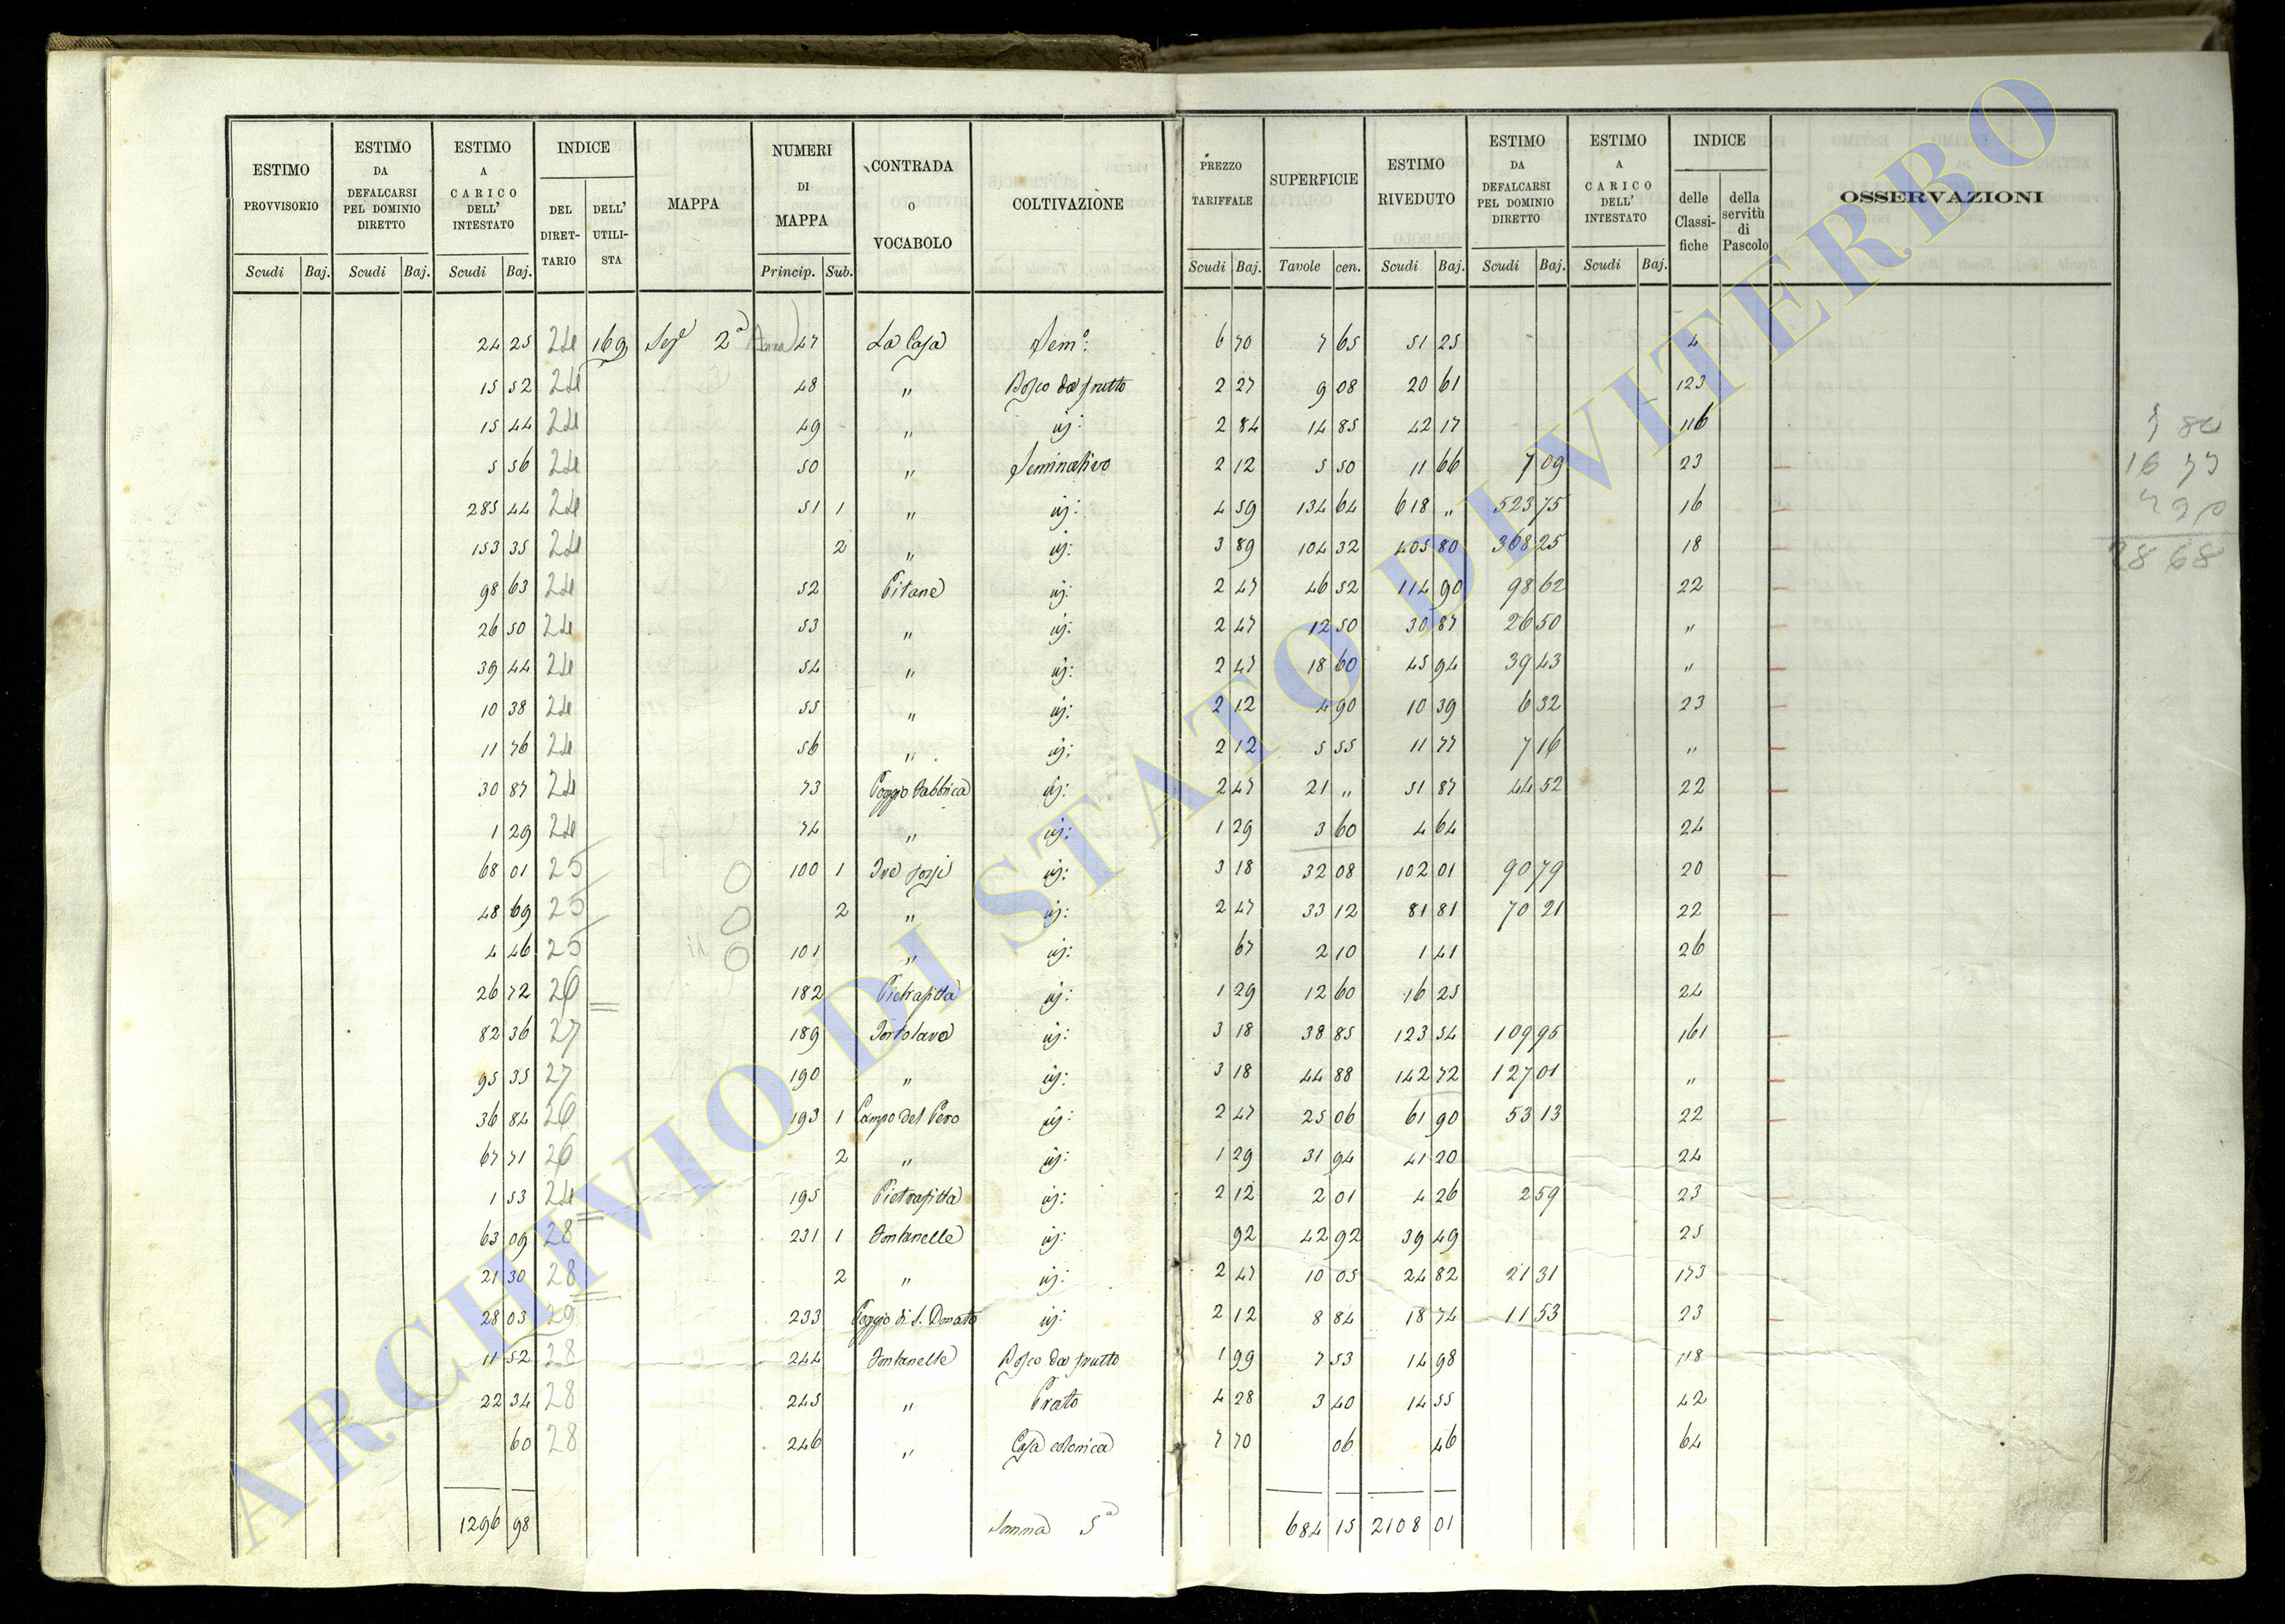 ESTIMO PROVVISORIO | ESTIMO DA DEFALCARSI PEL DOMINIO DIRETTO | ESTIMO A CARICO DELL' INTESTATO | INDICE | MAPPA | NUMERI DI MAPPA | CONTRADA O VOCABOLO | COLTIVAZIONE | PREZZO TARIFFALE | SUPERFICIE | ESTIMO RIVEDUTO | ESTIMO DA DEFALCARSI PEL DOMINIO DIRETTO | ESTIMO A CARICO DELL' INTESTATO | INDICE | OSSERVAZIONI
DEL DIRET-TARIO | DELL' UTILI-STA | delle Classi-fiche | della servitù di Pascolo
Scudi | Baj. | Scudi | Baj. | Scudi | Baj. | Princip. | Sub. | Scudi | Baj. | Tavole | cen. | Scudi | Baj. | Scudi | Baj. | Scudi | Baj.
24 25 | 24 | 169 | Sez.e 2a | 47 | La Casa | Sem.o: | 6 70 | 7 65 | 51 25 | 4
15 52 | 24 | 48 | " | Bosco da frutto | 2 27 | 9 08 | 20 61 | 123
15 44 | 24 | 49 | " | id: | 2 84 | 14 85 | 42 17 | 116
5 56 | 24 | 50 | " | Seminativo | 2 12 | 5 50 | 11 66 | 7 09 | 23
285 44 | 24 | 51 | 1 | " | id: | 4 59 | 134 64 | 618 " | 523 75 | 16
153 35 | 24 | 2 | " | id: | 3 89 | 104 32 | 405 80 | 368 25 | 18
98 63 | 24 | 52 | Pitane | id: | 2 47 | 46 52 | 114 90 | 98 62 | 22
26 50 | 24 | 53 | " | id: | 2 47 | 12 50 | 30 87 | 26 50 | "
39 44 | 24 | 54 | " | id: | 2 47 | 18 60 | 45 94 | 39 43 | "
10 38 | 24 | 55 | " | id: | 2 12 | 4 90 | 10 39 | 6 32 | 23
11 76 | 24 | 56 | " | id: | 2 12 | 5 55 | 11 77 | 7 16 | "
30 87 | 24 | 73 | Poggio Fabbrica | id: | 2 47 | 21 " | 51 87 | 44 52 | 22
1 29 | 24 | 74 | " | id: | 1 29 | 3 60 | 4 64 | 24
68 01 | 25 | 100 | 1 | id: | 3 18 | 32 08 | 102 01 | 90 79 | 20
48 69 | 25 | 2 | " | id: | 2 47 | 33 12 | 81 81 | 70 21 | 22
4 46 | 25 | 101 | " | id: | 67 | 2 10 | 1 41 | 26
26 72 | 26 | 182 | Pietrafitta | id: | 1 29 | 12 60 | 16 25 | 24
82 36 | 27 | 189 | id: | 3 18 | 38 85 | 123 54 | 109 95 | 161
95 35 | 27 | 190 | " | id: | 3 18 | 44 88 | 142 72 | 127 01 | "
36 84 | 26 | 193 | 1 | Campo del Pero | id: | 2 47 | 25 06 | 61 90 | 53 13 | 22
67 71 | 26 | 2 | " | id: | 1 29 | 31 94 | 41 20 | 24
1 53 | 24 | 195 | Pietrafitta | id: | 2 12 | 2 01 | 4 26 | 2 59 | 23
63 09 | 28 | 231 | 1 | Fontanelle | id: | 92 | 42 92 | 39 49 | 25
21 30 | 28 | 2 | " | id: | 2 47 | 10 05 | 24 82 | 21 31 | 173
28 03 | 29 | 233 | Poggio di S. Donato | id: | 2 12 | 8 84 | 18 74 | 11 53 | 23
11 52 | 28 | 244 | Fontanelle | Bosco da frutto | 1 99 | 7 53 | 14 98 | 118
22 34 | 28 | 245 | " | Prato | 4 28 | 3 40 | 14 55 | 42
60 | 28 | 246 | " | Casa colonica | 7 70 | 06 | 46 | 64
1296 98 | Somma 5a | 684 15 | 2108 01
28 68
ARCHIVIO DI STATO DI VITERBO